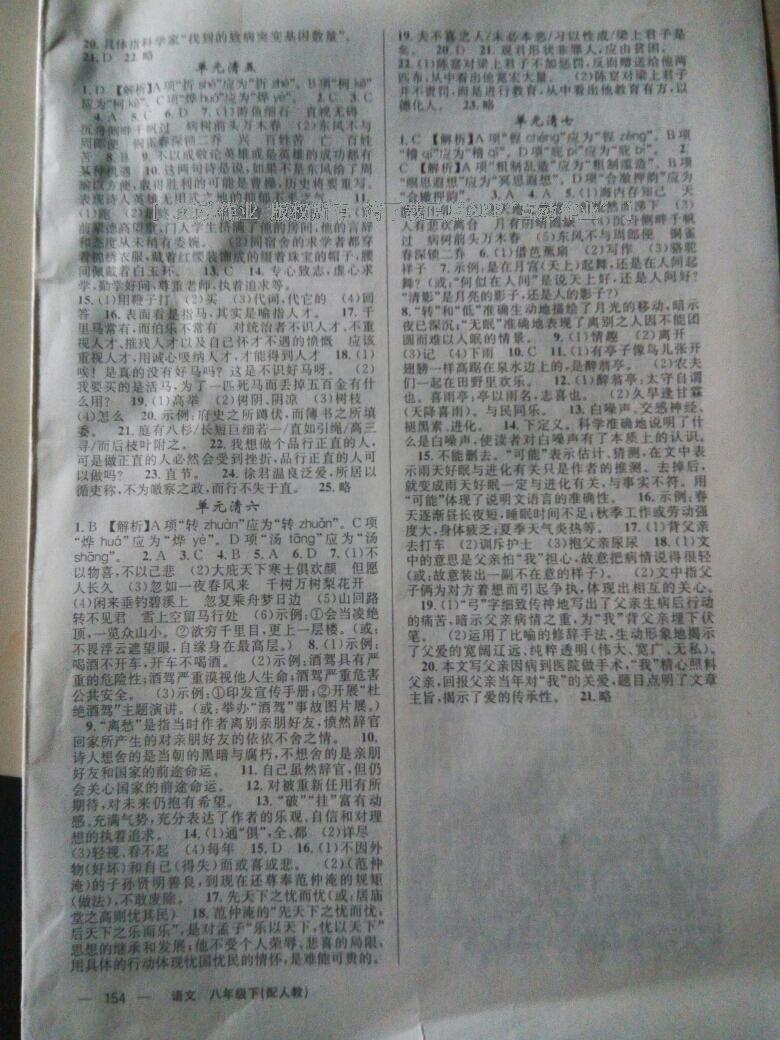 20. 具体指科学家“找到的致病突变基因数量”。
21. D 22. 略
单元清五
1. D 【解析】A项“折shé”应为“折zhé”。B项“柯kē”
应为“柯kē”。C项“烨huá”应为“烨yè”。 2. C 3. C
4. A 5. C 6. D 7. (1)游鱼细石 直视无碍
沉舟侧畔千帆过 病树前头万木春 (2)东风不与
周郎便 铜雀春深锁二乔 兴 百姓苦 亡 百姓
苦 8. B 9. 不以成败论英雄或是英雄的成功都有
某种机遇 10. 这两句诗是说,如果不是东风给了周
瑜以方便,取得胜利的可能是曹操,历史将要重写。
表现诗人英雄无用武之地的抑郁不平之气。 11.
(1)跑
前辈德高望重,门人学生挤满了他的房间,他的言辞
和态度从未稍有委婉。 (2)同宿舍的求学者都穿
着锦绣衣服,戴着红缨装饰成的缀着珠宝的帽子,腰
间佩戴着白玉环。 13. C 14. 专心致志,虚心求
学,勤学好问,尊重老师,执着追求等。
15. (1)用鞭子打 (2)买 (3)代词,代它的 (4)回
答 16. 表面看是指马,其实是喻指人才。 17. 千
里马常有,而伯乐不常有 对统治者不识人才、不重
视人才、摧残人才以及自己怀才不遇的愤慨 应该
重视人才,用诚心吸纳人才,才能得到人才 18. (1)
唉!是真的没有好马吗?这是不识好马呀。 (2)
我要买的是活马,为了一匹死马而丢掉五百金有什
么用? 19. (1)高举 (2)树阴,阴凉 (3)树枝
(4)怎么 20. 示例:府史之所蹲伏,而簿书之所填
委。 21. 庭有八杉/长短巨细若一/直如引绳/高三
寻/而后枝叶附之。 22. 我想做个品行正直的人,
可是做正直的人必然会受到挫折,品行正直的人可
以做吗? 23. 直节。 24. 徐君温良泛爱,所居以
循吏称,不为皦察之政,而行不失于直。 25. 略
单元清六
1. B 【解析】A项“转zhuàn”应为“转zhuǎn”。C项
“烨huá”应为“烨yè”。D项“汤tāng”应为“汤
shāng”。 2. A 3. C 4. B 5. A 6. D 7. (1)不
以物喜,不以己悲 (2)大庇天下寒士俱欢颜 但愿
人长久 (3)忽如一夜春风来 千树万树梨花开
(4)闲来垂钓碧溪上 忽复乘舟梦日边 (5)山回路
转不见君 雪上空留马行处 (6)示例:①会当凌绝
顶,一览众山小。②欲穷千里目,更上一层楼。(或:
不畏浮云遮望眼,自缘身在最高层。) 8. (1)示例:
喝酒不开车,开车不喝酒。 (2)示例:酒驾具有严
重的危险性;酒驾严重漠视他人生命;酒驾严重危害
公共安全。 (3)示例:①印发宣传手册;②开展“杜
绝酒驾”主题演讲。(或:举办“酒驾”事故图片展。)
9. “离愁”是指当时作者离别亲朋好友,愤然辞官
回家所产生的对亲朋好友的依依不舍之情。 10.
诗人想舍的是当朝的黑暗与腐朽,不想舍的是亲朋
好友和国家的前途命运。 11. 自己虽然辞官,但仍
会关心国家的前途命运。 12. 对被重新任用有所
期待,对未来仍抱有希望。 13. “破”“挂”富有动
感、充满气势,充分表达了作者的乐观、自信和对理
想的执着追求。 14. (1)通“俱”,全、都 (2)详尽
(3)轻视、看不起 (4)每年 15. D 16. (1)不因外
物(好坏)和自己(得失)而或喜或悲。 (2)(范仲
淹)的子孙贤明善良,到现在还尊奉范仲淹的规矩
(做法),不敢废除。 17. 先天下之忧而忧(或:居庙
堂之高则忧其民) 18. 范仲淹的“先天下之忧而忧,
后天下之乐而乐”,是对孟子“乐以天下,忧以天下”
思想的继承和发展;他不受个人荣辱、悲喜的局限,
用具体的行动体现忧国忧民的情怀,是难能可贵的。
19. 夫不喜之人/未必本恶/习以性成/梁上君子是
矣。 20. D 21. 观君形状非罪人,应由贫困。
22. (1)陈寔对梁上君子不加惩罚,反而赠送给他两
匹布,从中看出他宽宏大量。 (2)陈寔对梁上君子
并不责罚,而是进行教育,从中看出他教育有方,以
德化人。 23. 略
单元清七
1. C 【解析】A项“
 2.
C 【解析】A项“粗制乱造”应为“粗制滥造”。B项
“瞑思遐想”应为“冥思遐想”。D项“合澈押韵”应为
“合辙押韵”。 3. A 4. A 5. (1)海内存知己 天
人有悲欢离合 月有阴晴圆缺 (4)沉舟侧畔千帆
过 病树前头万木春 (5)东风不与周郎便 铜雀
春深锁二乔 6. (1)借芭蕉扇 (2)写作 (3)骆驼
祥子 7. 示例:是在月宫(天上)起舞,还是在人间起
舞?(或:“何似在人间”是说天上好,还是人间好?
“清影”是月亮的影子,还是人的影子?)
8. “转”和“低”准确生动地描绘了月光的移动,暗示
夜已深沉;“无眠”准确地表现了离别之人因不能团
圆而难以入眠的情景。 9. (1)情趣 (2)离开
(3)记 (4)下雨 10. C 11. (1)有亭子像鸟儿张开
翅膀一样高踞在泉水边上的,是醉翁亭。 (2)农夫
们一起在田野里欢乐。 12. (1)醉翁亭:太守自谓
也。喜雨亭:亭以雨名,志喜也。 (2)久旱逢甘霖
(天降喜雨)。与民同乐。 13. 白噪声、交感神经、
褪黑素、进化。 14. 下定义。科学准确地说明了什
么是白噪声,使读者对白噪声有了本质上的认识。
15. 不能删去。“可能”表示估计、猜测,在文中表
示雨天好眠与进化有关只是作者的推测。去掉后,
就变成雨天好眠一定与进化有关,与事实不符。用
“可能”体现了说明文语言的准确性。 16. 示例:春
天逐渐昼长夜短,睡眠时间不足;秋季工作或劳动强
度大,身体疲乏;夏季天气炎热等。 17. (1)背父亲
去打车 (2)训斥护士 (3)抱父亲尿尿 18. (1)文
中的意思是父亲怕“我”担心,故意把病情说得很轻
(或:故意装出一副不在意的样子)。 (2)文中指父
子俩为对方着想而引起争执,体现出相互的关心。
19. (1)“弓”字细致传神地写出了父亲生病后行动
的痛苦,暗示父亲病情之重,为“我”背父亲埋下伏
笔。 (2)运用了比喻的修辞手法,生动形象地揭示
了父爱的宽阔辽远、纯粹透明(伟大、宽广、无私)。
20. 本文写父亲因病到医院做手术,“我”精心照料
父亲,回报父亲当年对“我”的关爱,题目点明了文章
主旨,揭示了爱的传承性。 21. 略
— 154 — 语文 八年级下(配人教)